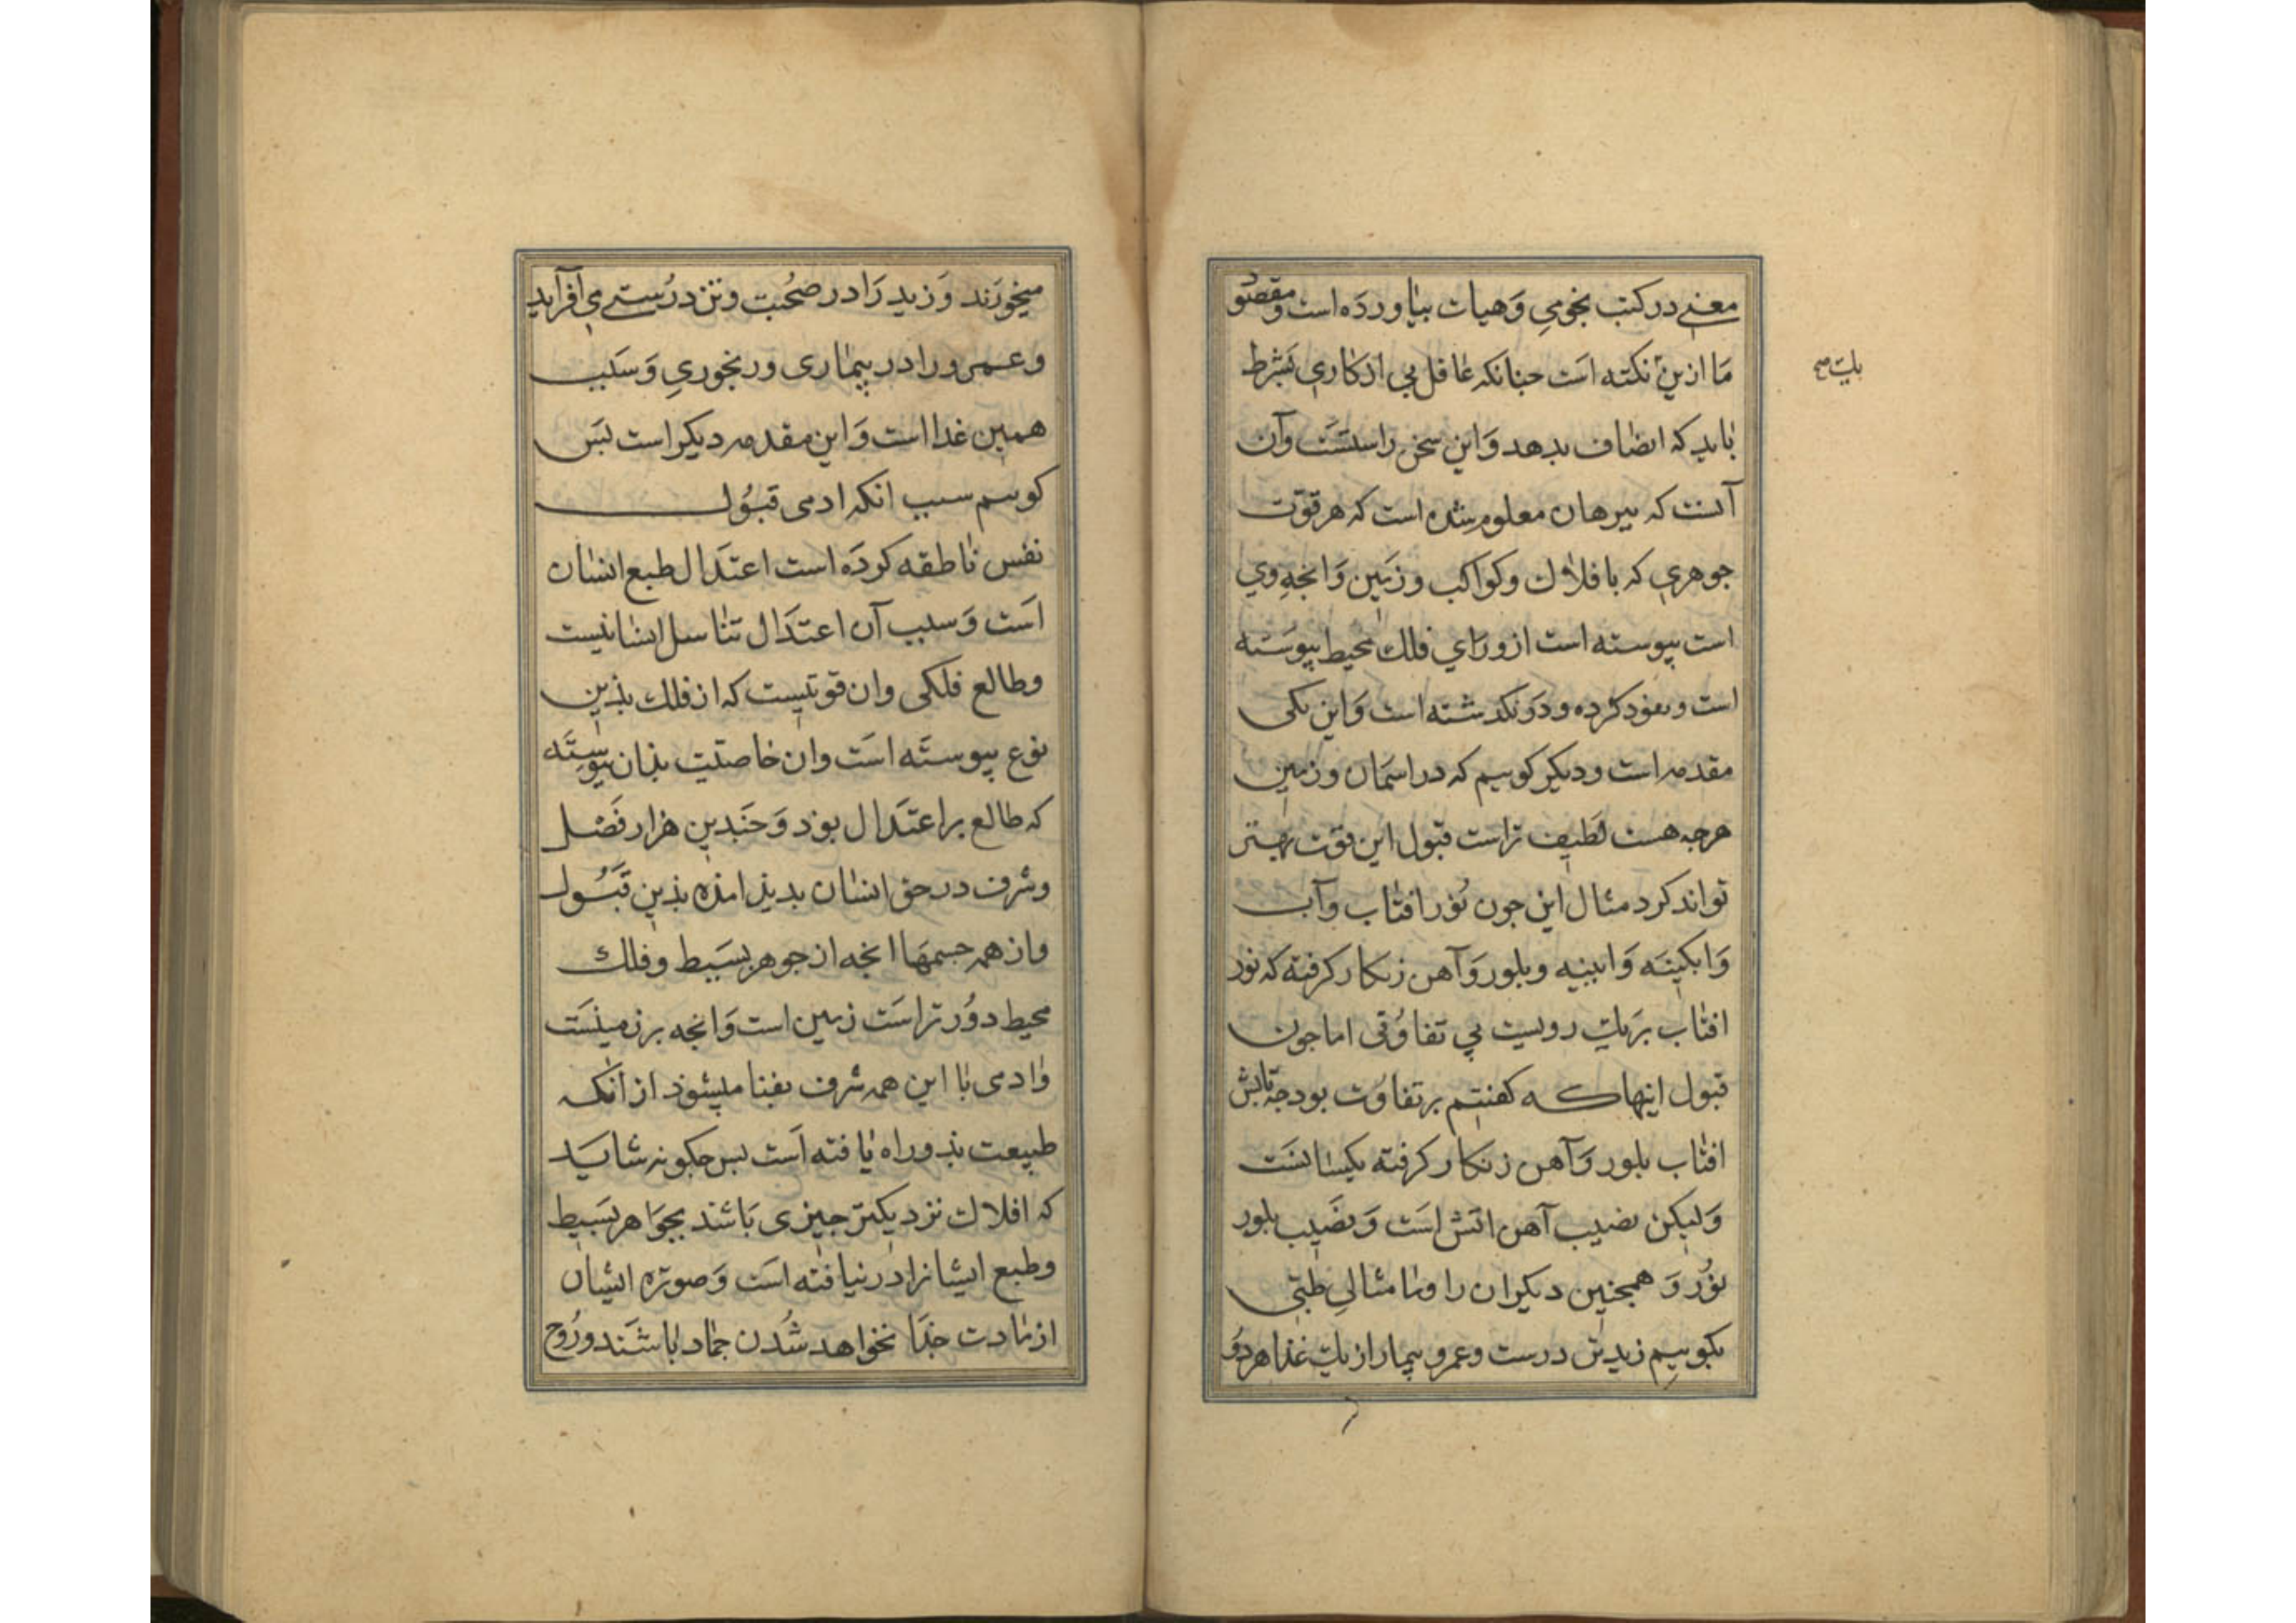 معنی در کتب نجومی وَهیات بیاوردَه است ومقصو
مَا ازین نکته است جنانکه عاقل بی ازکاری بشرط
یک صح
باید که انصاف بدهد وَاین سخن راستست وآن
آنست که ببرهان معلوم شده است که هر قوّت
جوهری که بافلاک وکواکب وزمین وَانجه وی
است بیوسته است از ورَای فلک محیط بیوسته
است ونفوذ کرده ودرو نکذشته است وَاین یکی
مقدمه است ودیکر کوییم که در اسمان وزمین
هرجه هست لطیف تر است قبول این قوّت بهتر
تواند کرد مثال این جون نُور افتاب وآب
وَابکینه وَایینه وبلور وَآهن زنکار کرفته که نور
افتاب بریک رویست بی تفاوُتی اما جون
قبول اینها که کفتیم برتفاوُت بود جه تابش
افتاب بلور وَآهن زنکار کرفته یکسانست
وَلیکن نصیب آهن اتش است وَنصیب بلور
نوُر وَهمجنین دیکران را وما مثالی طبّی
بکوییم زید تن درست وعمرو بیمار از یک غذا هر دو
میخورند وَزید رَا در صحّت وتن درُستی می افزاید
وعمرو را در بیماری ورنجوری وَسبب
همین غذا است وَاین مقدمه دیکر است بس
کوییم سبب انکه ادمی قبُول
نفس ناطقه کردَه است اعتدَال طبع انسان
است وَسبب آن اعتدَال تناسل انسانیست
وطالع فلکی وان قوتیست که از فلک بذین
نوع بیوستَه است وان خاصیت بذان بیوستَه
که طالع بر اعتدَال بوَد وَجندین هزار فَضل
وشرف در حق انسان بدید امذه بذین قبُول
واز همه جسمهَا انجه از جوهر بسَیط وفلک
محیط دوُر تر است زمین است وَانجه بر زمینست
وَادمی با این همه شرف بفنا میشوَذ از انکه
طبیعت بذو راه یافته است بس جکونه شاید
که افلاک نزدیکتر جیزی بَاشند بجوَاهر بسَیط
وطبع ایشانرا در نیافته است وَصورَه ایشان
از مادت جذَا نخواهد شُدن جماد باشند وروُح